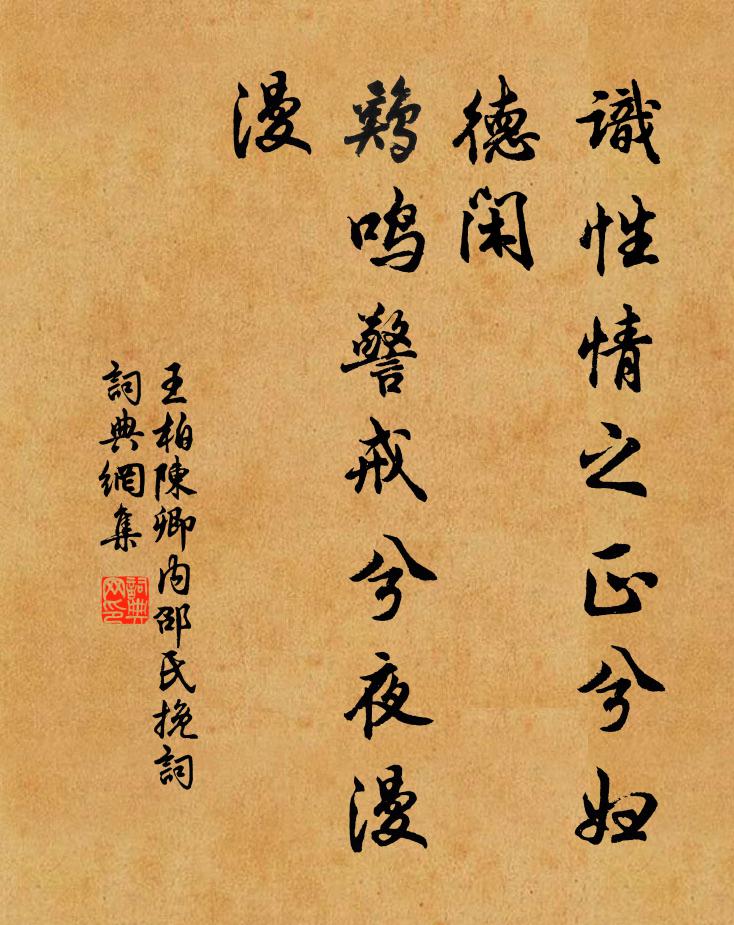 識性情之正兮妇
德闲
鷄鸣警戒兮夜漫
漫
王柏陳卿内邵氏挽詞
詞典網集
詞典网印